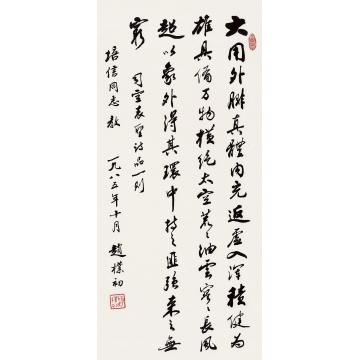 大用外腓真體内充返虛入渾積健為
雄具備万物橫絕太空荒々油雲寥々長風
超以象外得其環中持之匪强来之無
窮
司空表聖詩品一則
培信同志教
一九八五年十月
趙樸初